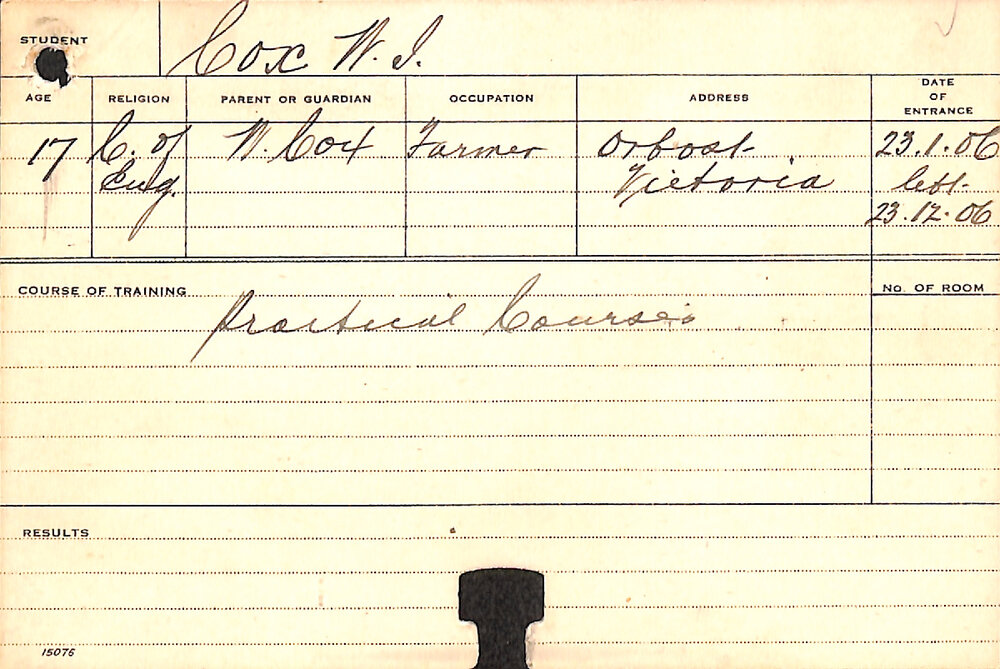 STUDENT Cox W. J.
AGE RELIGION PARENT OR GUARDIAN OCCUPATION ADDRESS DATE OF ENTRANCE
17 C. of W. Cox Farmer Orbost 23.1.06
Eng. Victoria left
23.12.06
COURSE OF TRAINING No. OF ROOM
Practical Course
RESULTS
15076